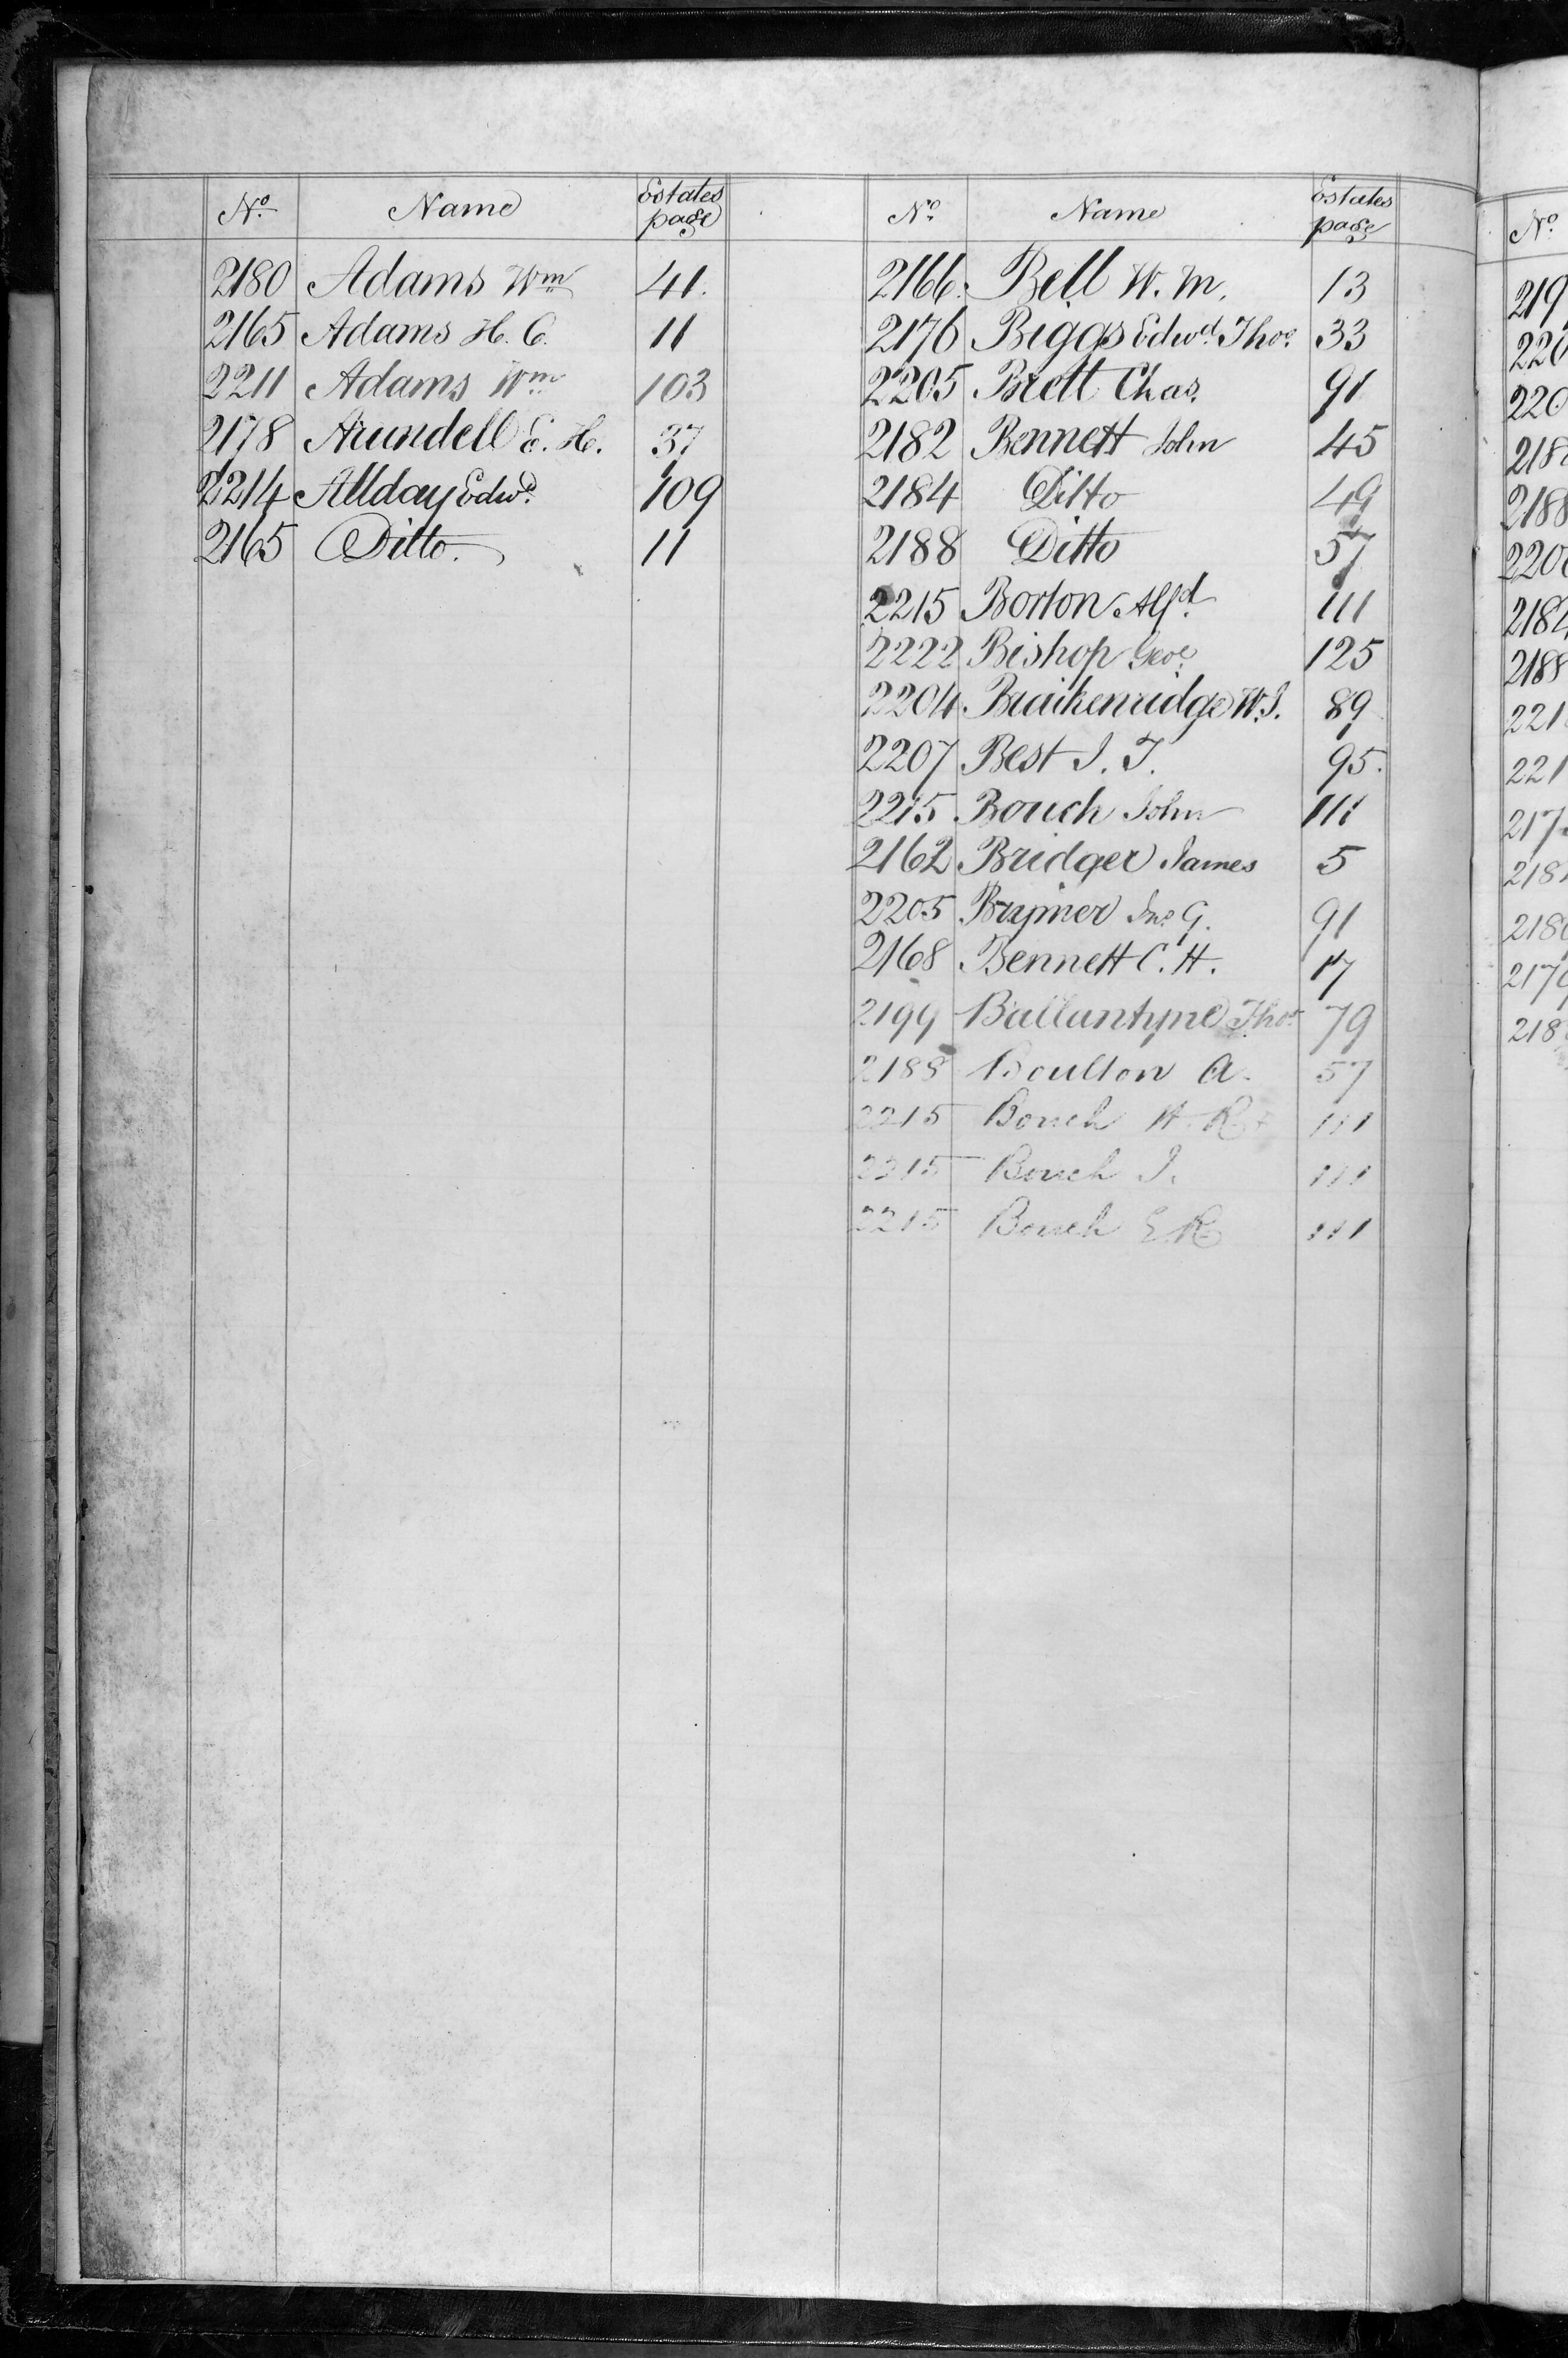 No. Name Estates page
2180 Adams Wm 41.
2165 Adams H. C. 11
2211 Adams Wm 103
2178 Arundell E. H. 37
2214 Allday Edwd. 109
2165 Ditto. 11
No. Name Estates page
2166. Bell W. M. 13
2176 Biggs Edwd. Thos. 33
2205 Brett Chas. 91
2182 Bennett John 45
2184 Ditto 49
2188 Ditto 57
2215 Borton Alfd. 111
2222 Bishop Geoe. 125
2204 Braikenridge W. J. 89
2207 Best J. T. 95.
2215 Bouch John 111
2162 Bridger James 5
2205 Brymer Jno. G. 91
2168 Bennett C. H. 17
2199 Ballantyne Thos. 79
2188 Boulton A. 57
2215 Bouch H. R. 111
2215 Bouch J. 111
2215 Bouch E R 111
No.
219
220
220
218
2188
220
2184
2188
221
221
217
218
218
217
218